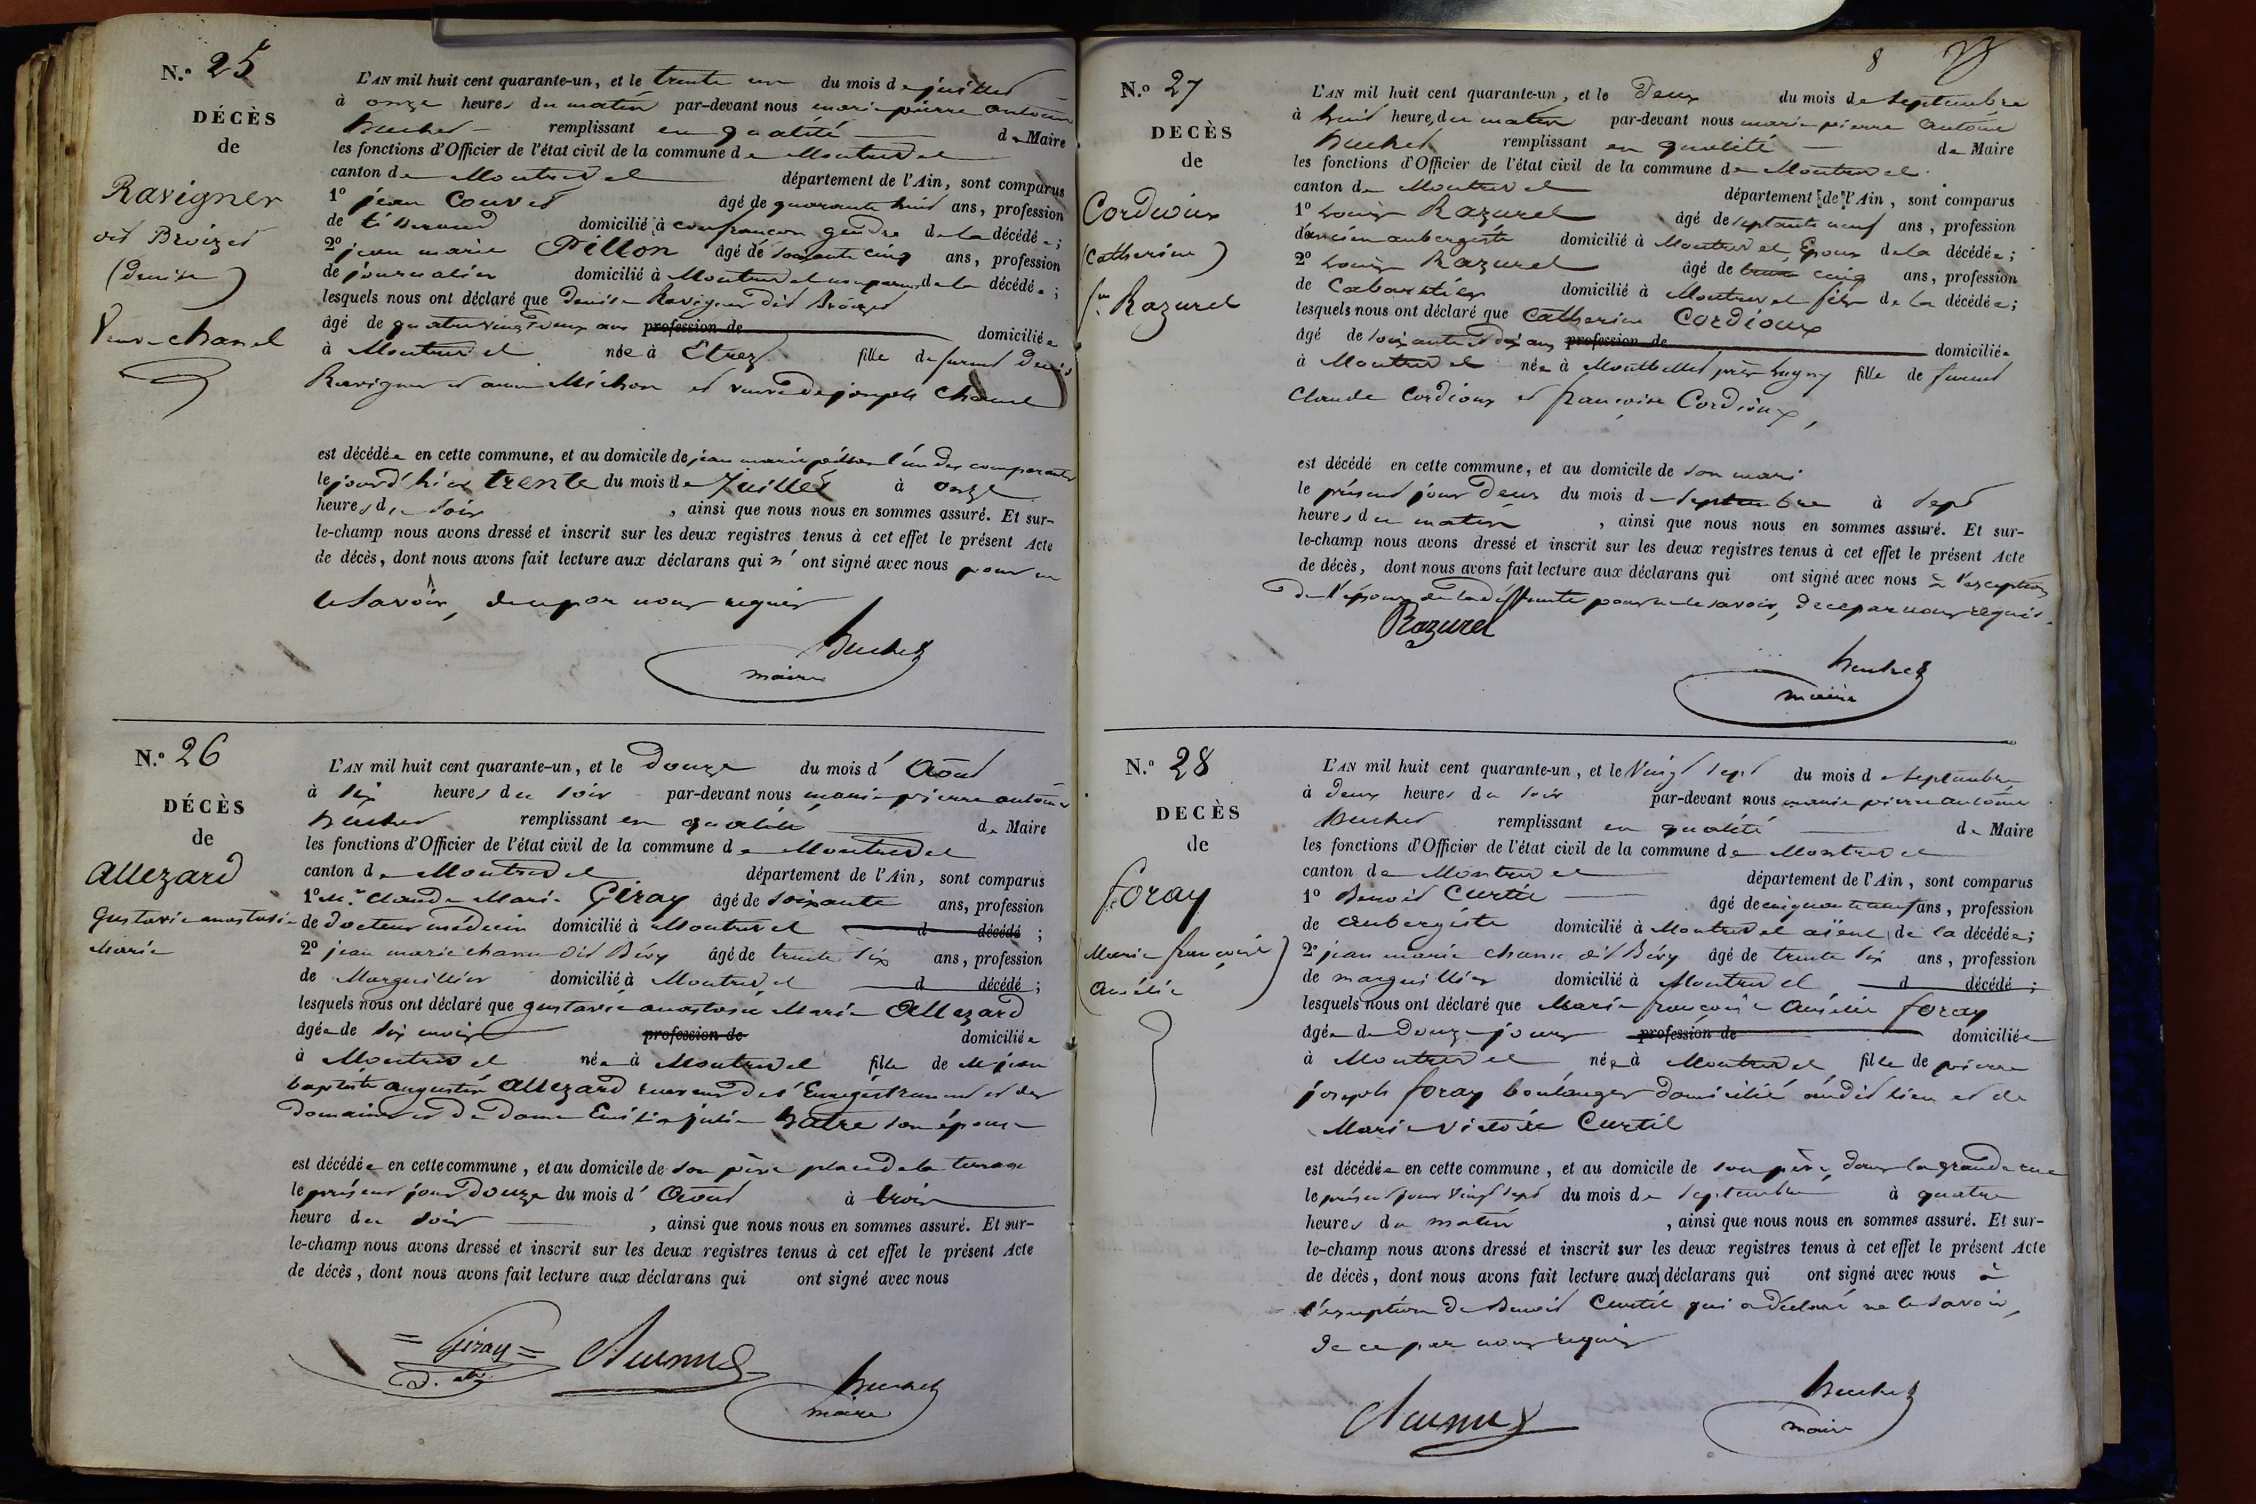 N.o 25
DÉCÈS
de
Ravigner
dit Broizet
(denise)
Veuve chanel
L'AN mil huit cent quarante-un, et le trente un du mois de juillet
à onze heures du matin par-devant nous marie pierre antoine
buchet remplissant en qualité de Maire
les fonctions d'Officier de l'état civil de la commune de Montrevel
canton de Montrevel département de l'Ain, sont comparus
1o jean Couvet âgé de quarante huit ans, profession
de tisserand domicilié à confrançon gendre de la décédée;
2o jean marie Pillon âgé de soixante cinq ans, profession
de journalier domicilié à Montrevel de la décédée;
lesquels nous ont déclaré que denise Ravigner dit Broizet
âgé de quatre vingt deux ans profession de domiciliée
à Montrevel née à Etrez fille de furent denis
Ravigner et anne Michon et veuve de joseph Chanel
est décédée en cette commune, et au domicile de jean marie pillon l'un des comparants
le jour d'hier trente du mois de Juillet à onze
heures du soir, ainsi que nous nous en sommes assuré. Et sur-
le-champ nous avons dressé et inscrit sur les deux registres tenus à cet effet le présent Acte
de décès, dont nous avons fait lecture aux déclarans qui n'ont signé avec nous pour ne
le savoir, de ce par nous requis
buchet
maire
N.o 26
DÉCÈS
de
Allezard
Gustavie anastasie
Marie
L'AN mil huit cent quarante-un, et le douze du mois d'Août
à six heures du soir par-devant nous marie pierre antoine
buchet remplissant en qualité de Maire
les fonctions d'Officier de l'état civil de la commune de Montrevel
canton de Montrevel département de l'Ain, sont comparus
1o Mr. Claude Marie Giray âgé de soixante ans, profession
de docteur médecin domicilié à Montrevel d décédé;
2o jean marie chanu dit Bévy âgé de trente six ans, profession
de Marguillier domicilié à Montrevel d décédé;
lesquels nous ont déclaré que gustavie anastasie Marie Allezard
âgée de six mois profession de domiciliée
à Montrevel née à Montrevel fille de M jean
baptiste augustin Allezard receveur de l'Enregistrement et des
domaines et de dame Emilie julie batre son épouse
est décédée en cette commune, et au domicile de son père place de la terrasse
le présent jour douze du mois d'Août à trois
heure du soir, ainsi que nous nous en sommes assuré. Et sur-
le-champ nous avons dressé et inscrit sur les deux registres tenus à cet effet le présent Acte
de décès, dont nous avons fait lecture aux déclarans qui ont signé avec nous
= Giray =
buchet
maire
8
N.o 27
DECÈS
de
Cordioux
(Catherine)
fe. Razurel
L'AN mil huit cent quarante-un, et le deux du mois de septembre
à huit heures du matin par-devant nous marie pierre antoine
buchet remplissant en qualité de Maire
les fonctions d'Officier de l'état civil de la commune de Montrevel
canton de Montrevel département de l'Ain, sont comparus
1o Louis Razurel âgé de septante neuf ans, profession
d'ancien aubergiste domicilié à Montrevel Epoux de la décédée;
2o Louis Razurel âgé de trente cinq ans, profession
de Cabaretier domicilié à Montrevel fils de la décédée;
lesquels nous ont déclaré que Catherine Cordioux
âgé de soixante et dix ans profession de domiciliée
à Montrevel née à Montbellet près lugny fille de furent
Claude Cordioux et françoise Cordioux,
est décédé en cette commune, et au domicile de son mari
le présent jour deux du mois de septembre à sept
heures du matin, ainsi que nous nous en sommes assuré. Et sur-
le-champ nous avons dressé et inscrit sur les deux registres tenus à cet effet le présent Acte
de décès, dont nous avons fait lecture aux déclarans qui ont signé avec nous à l'exception
de l'époux de la deffunte pour ne le savoir, de ce par nous requis.
Razurel
buchet
maire
N.o 28
DECÈS
de
foray
(Marie françoise
amélie)
L'AN mil huit cent quarante-un, et le vingt sept du mois de septembre
à deux heures du soir par-devant nous marie pierre antoine
buchet remplissant en qualité de Maire
les fonctions d'Officier de l'état civil de la commune de Montrevel
canton de Montrevel département de l'Ain, sont comparus
1o Benoit Curtil âgé de cinquante neuf ans, profession
de aubergiste domicilié à Montrevel aïeul de la décédée;
2o jean marie chanu dit Bévy âgé de trente six ans, profession
de marguillier domicilié à Montrevel d décédé;
lesquels nous ont déclaré que Marie françoise amélie foray
âgée de douze jours profession de domiciliée
à Montrevel née à Montrevel fille de pierre
joseph foray boulanger domicilié audit lieu et de
Marie Victoire Curtil
est décédée en cette commune, et au domicile de son père, dans la grande rue
le présent jour vingt sept du mois de septembre à quatre
heures du matin, ainsi que nous nous en sommes assuré. Et sur-
le-champ nous avons dressé et inscrit sur les deux registres tenus à cet effet le présent Acte
de décès, dont nous avons fait lecture aux déclarans qui ont signé avec nous à
l'exception de Benoit Curtil qui a déclaré ne le savoir,
de ce par nous requis
buchet
maire